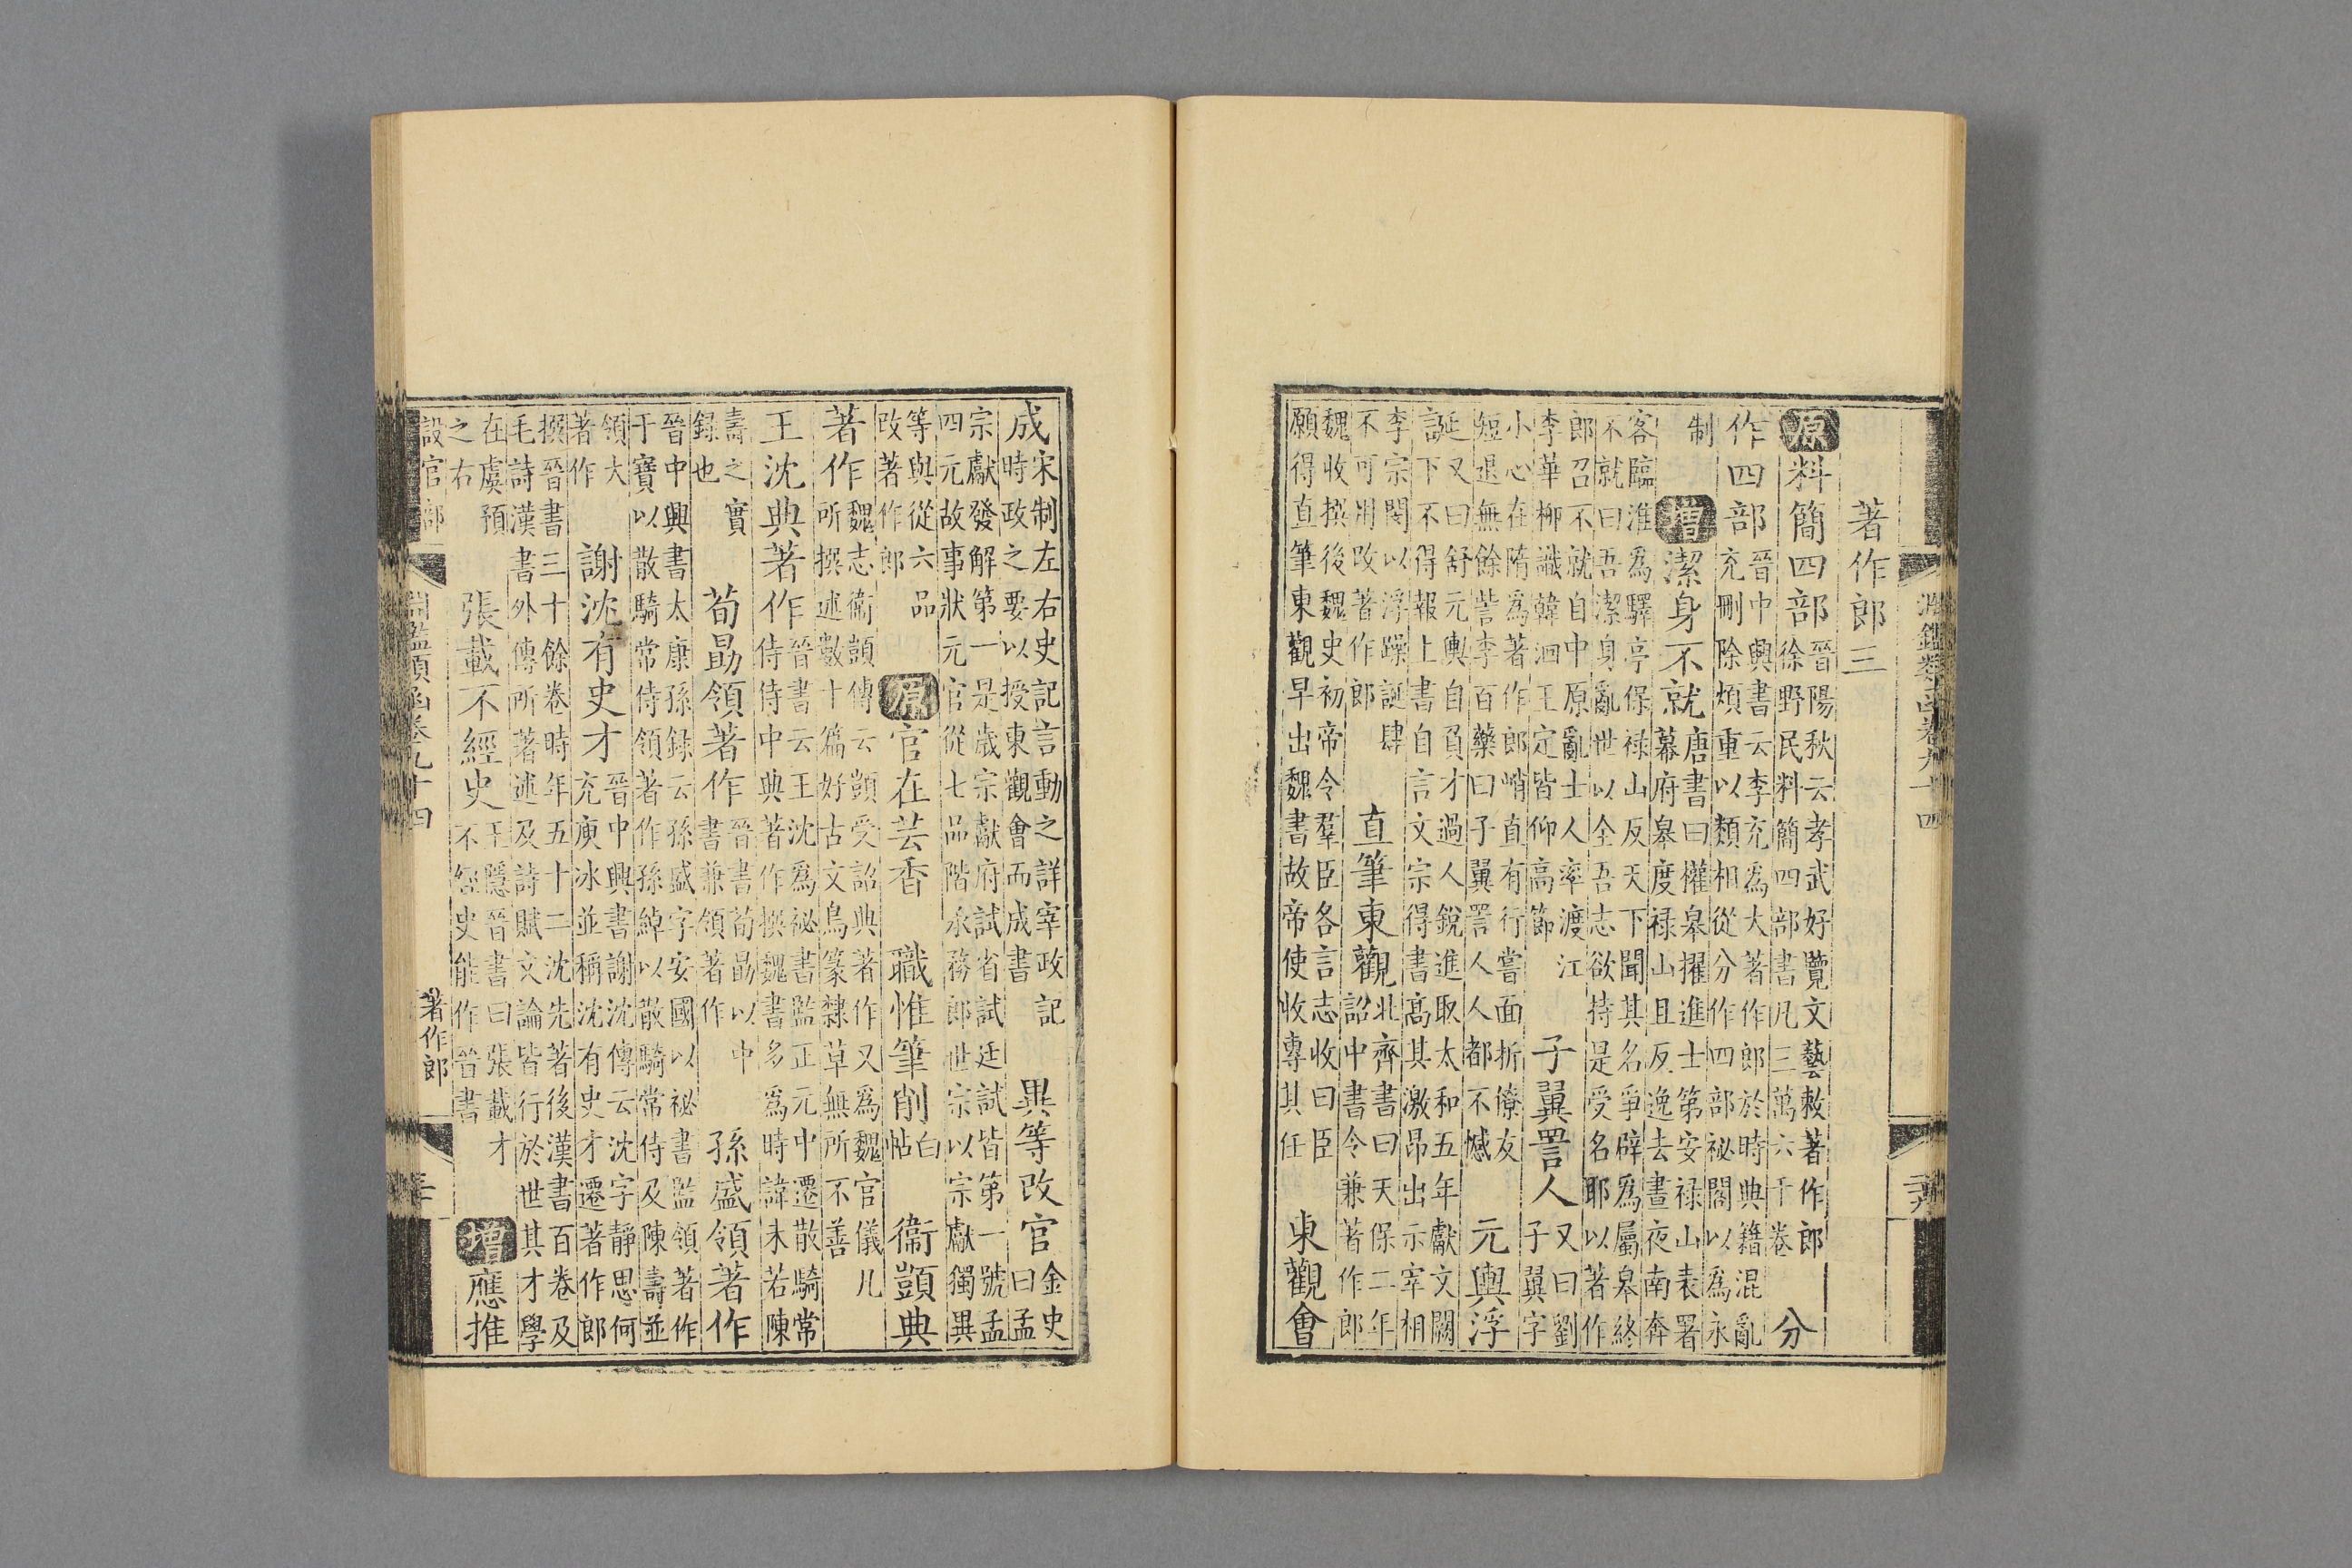 淵鑑類函卷九十四
著作郎三
原料簡四部晉陽秋云孝武好覽文藝敕著作郎徐野民料簡四部書凡三萬六千卷分
作四部晉中興書云李充為大著作郎於時典籍混亂充刪除煩重以類相從分作四部祕閣以為永
制增潔身不就唐書曰權皋擢進士第安祿山表署幕府皋度祿山且反逸去晝夜南奔
客臨淮為驛亭保祿山反天下聞其名爭辟為屬皋終不就曰吾潔身亂世以全吾志欲持是受名耶以著作
郎召不就自中原亂士人率渡江李華柳識韓洄王定皆仰高節子翼詈人又曰劉子翼字
小心在隋為著作郎峭直有行嘗面折僚友短退無餘訾李百藥曰子翼詈人人都不憾元輿浮
誕又曰舒元輿自負才過人銳進取太和五年獻文闕下不得報上書自言文宗得書高其激昂出示宰相
李宗閔以浮躁誕肆不可用改著作郎直筆東觀北齊書曰天保二年詔中書令兼著作郎
魏收撰後魏史初帝令羣臣各言志收曰臣願得直筆東觀早出魏書故帝使收專其任東觀會
成宋制左右史記言動之詳宰政記時政之要以授東觀會而成書異等改官金史曰孟
宗獻發解第一是歲宗獻府試省試廷試皆第一號孟四元故事狀元官從七品階承務郎世宗以宗獻獨異
等與從六品改著作郎原官在芸香職惟筆削白帖衞顗典
著作魏志衞顗傳云顗受詔典著作又為魏官儀凡所撰述數十篇好古文鳥篆隸草無所不善
王沈典著作晉書云王沈為祕書監正元中遷散騎常侍侍中典著作撰魏書多為時諱未若陳
壽之實錄也荀勗領著作晉書荀勗以中書兼領著作孫盛領著作
晉中興書太康孫録云孫盛字安國以祕書監領著作于寶以散騎常侍領著作孫綽以散騎常侍及陳壽並
領大著作謝沈有史才晉中興書謝沈傳云沈字靜思何充庾冰並稱沈有史才遷著作郎
撰晉書三十餘卷時年五十二沈先著後漢書百卷及毛詩漢書外傳所著述及詩賦文論皆行於世其才學
在虞預之右張載不經史王隱晉書曰張載才不經史能作晉書增應推
設官部
淵鑑類函卷九十四
著作郎